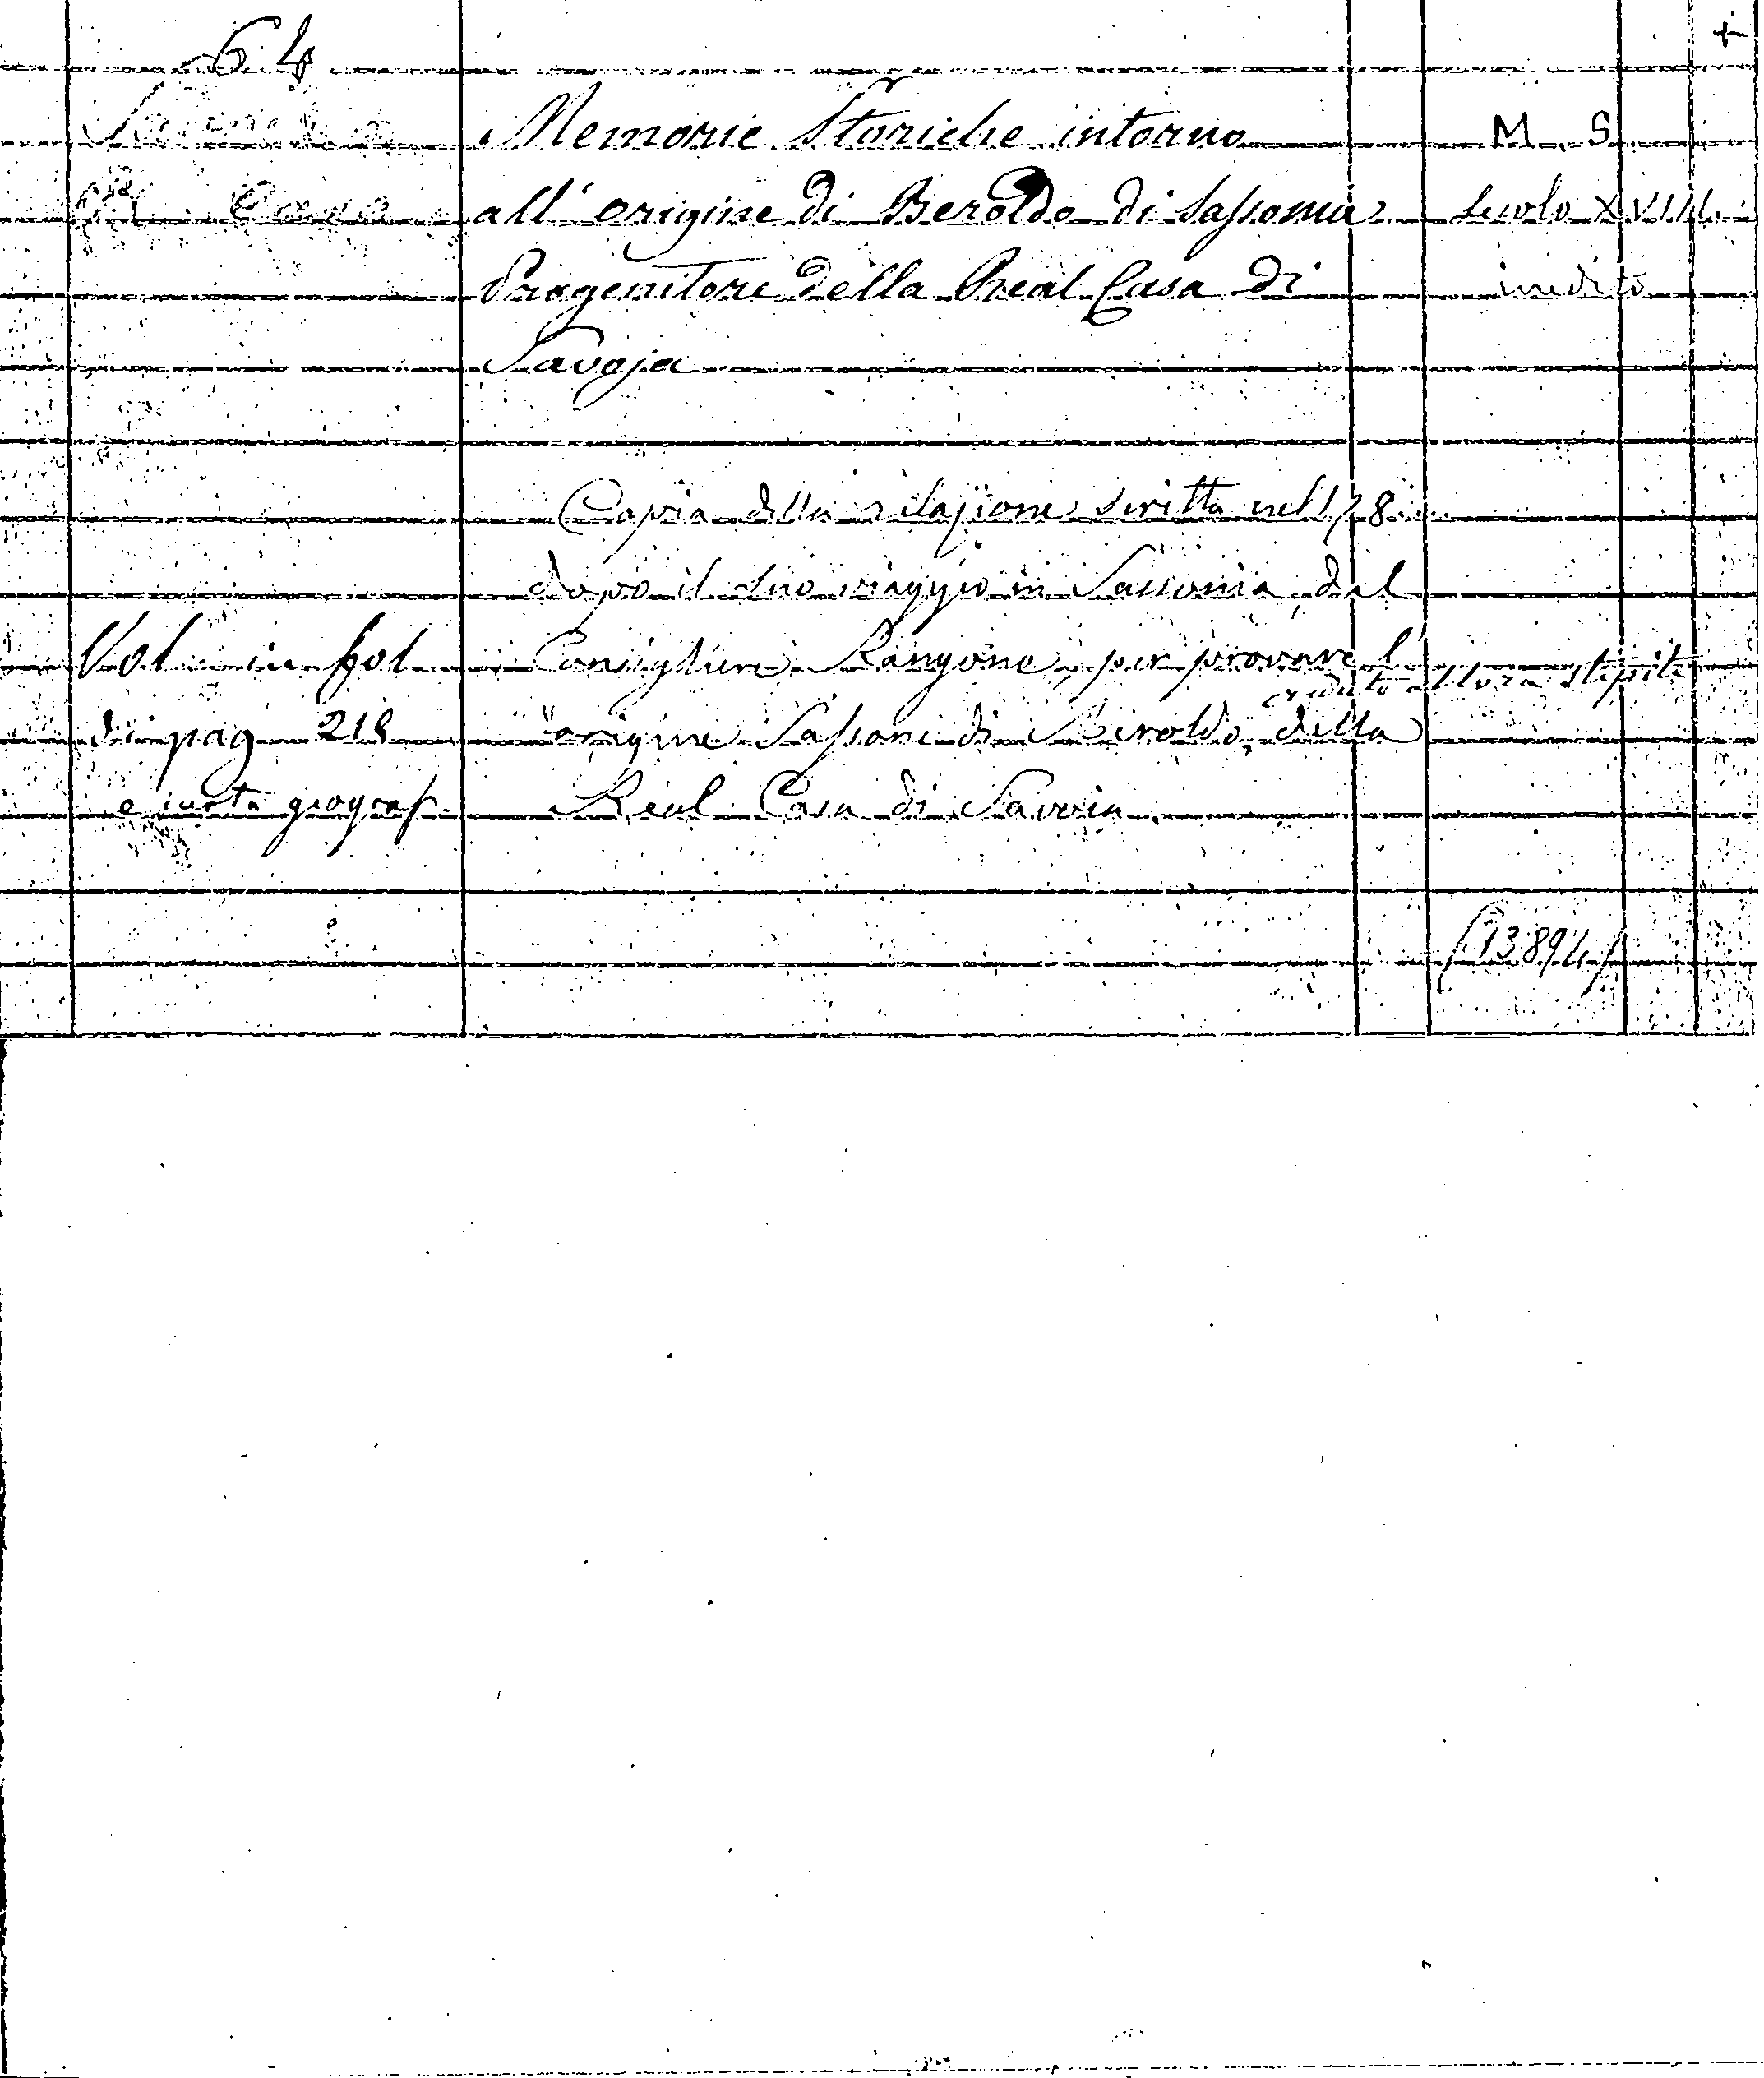 64
Memorie Storiche intorno M. S.
all'origine di Beroldo di Sassonia Secolo XVIII.
Progenitore della Real Casa di inedito
Savoja
Copia della relazione scritta nel 178
dopo il suo viaggio in Sassonia, dal
Vol in fol Consigliere Rangone, per provare l'
creduto allora stipite
di pag 218 origine Sassone di Beroldo, della
e carta geograf. Real Casa di Savoia
(13894)